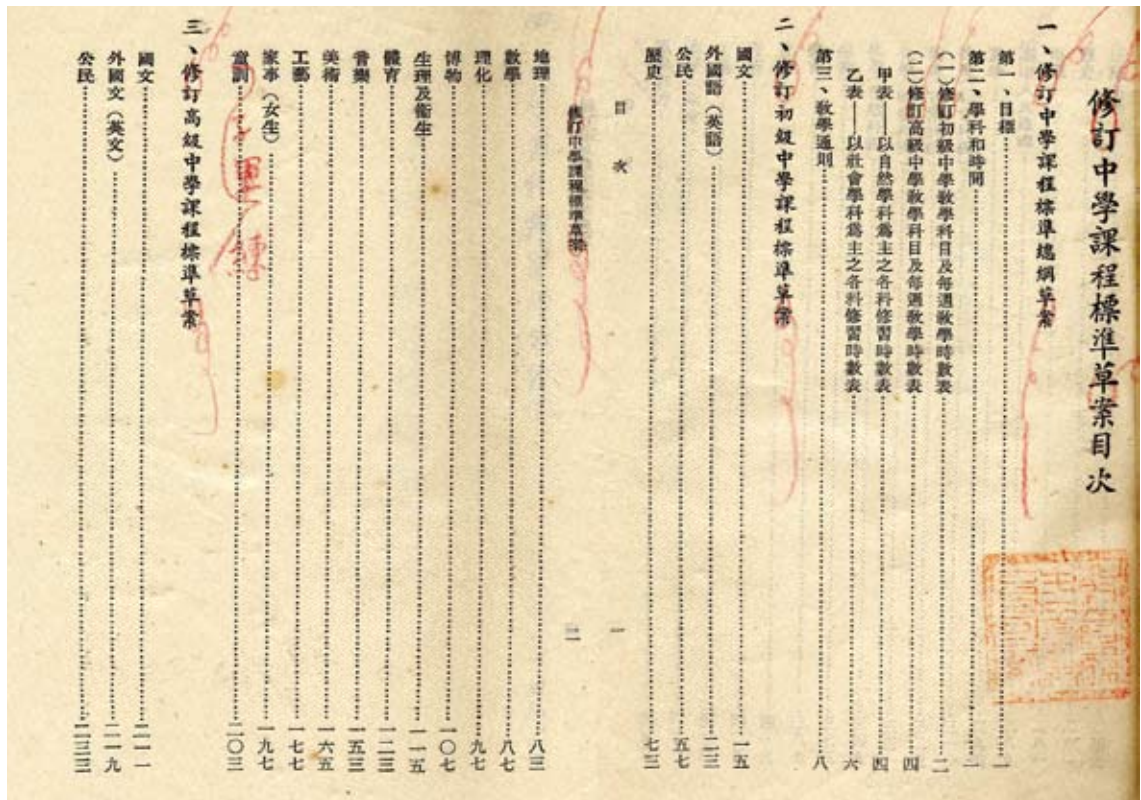 修訂中學課程標準草案目次
一、修訂中學課程標準總綱草案
第一、目標……一
第二、學科和時間……一
（一）修訂初級中學教學科目及每週教學時數表……二
（二）修訂高級中學教學科目及每週教學時數表……四
甲表——以自然學科爲主之各科修習時數表……四
乙表——以社會學科爲主之各科修習時數表……六
第三、教學通則……八
二、修訂初級中學課程標準草案
國文……一五
外國語（英語）……二三
公民……五七
歷史……七三
目次 一
修訂中學課程標準草案 二
地理……八三
數學……八七
理化……九七
博物……一〇七
生理及衞生……一一五
體育……一二三
音樂……一五三
美術……一六五
工藝……一七七
家事（女生）……一九七
童訓……二〇三
三、修訂高級中學課程標準草案
國文……二一一
外國文（英文）……二一九
公民……二三三